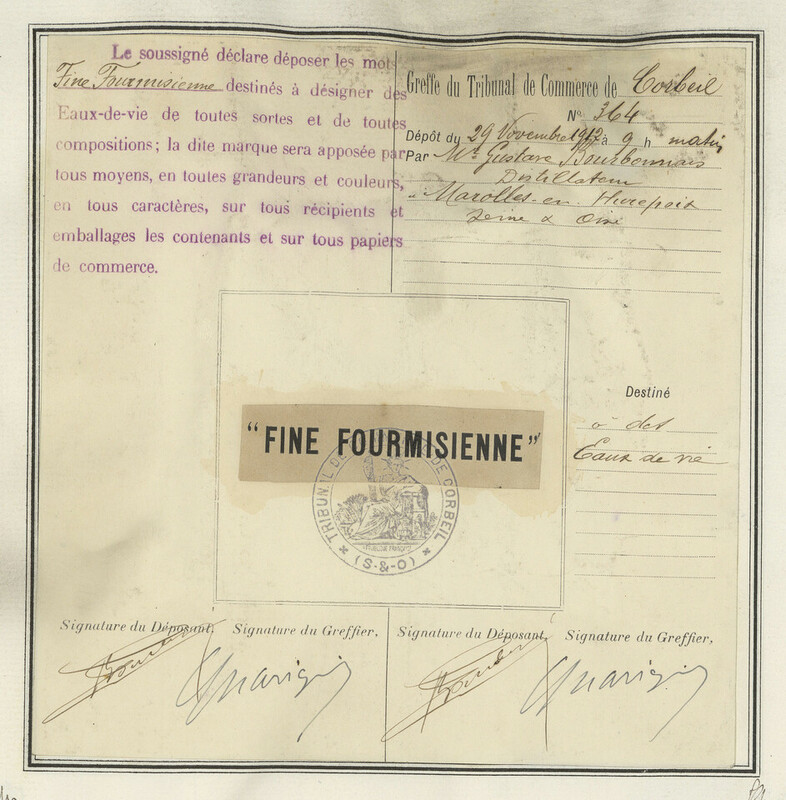 Le soussigné déclare déposer les mots
Fine Fourmisienne destinés à désigner des
Eaux-de-vie de toutes sortes et de toutes
compositions; la dite marque sera apposée par
tous moyens, en toutes grandeurs et couleurs,
en tous caractères, sur tous récipients et
emballages les contenants et sur tous papiers
de commerce.
Greffe du Tribunal de Commerce de Corbeil
N° 364
Dépôt du 29 Novembre 1912 à 9 h matin
Par Mr. Gustave Bourbonnais
Distillateur
Marolles-en-Hurepoix
Seine & Oise
"FINE FOURMISIENNE"
TRIBUNAL DE DE CORBEIL
RÉPUBLIQUE FRANÇAISE
(S-&-O)
Destiné
à des
Eaux de vie
Signature du Déposant. Signature du Greffier.
Signature du Déposant. Signature du Greffier.